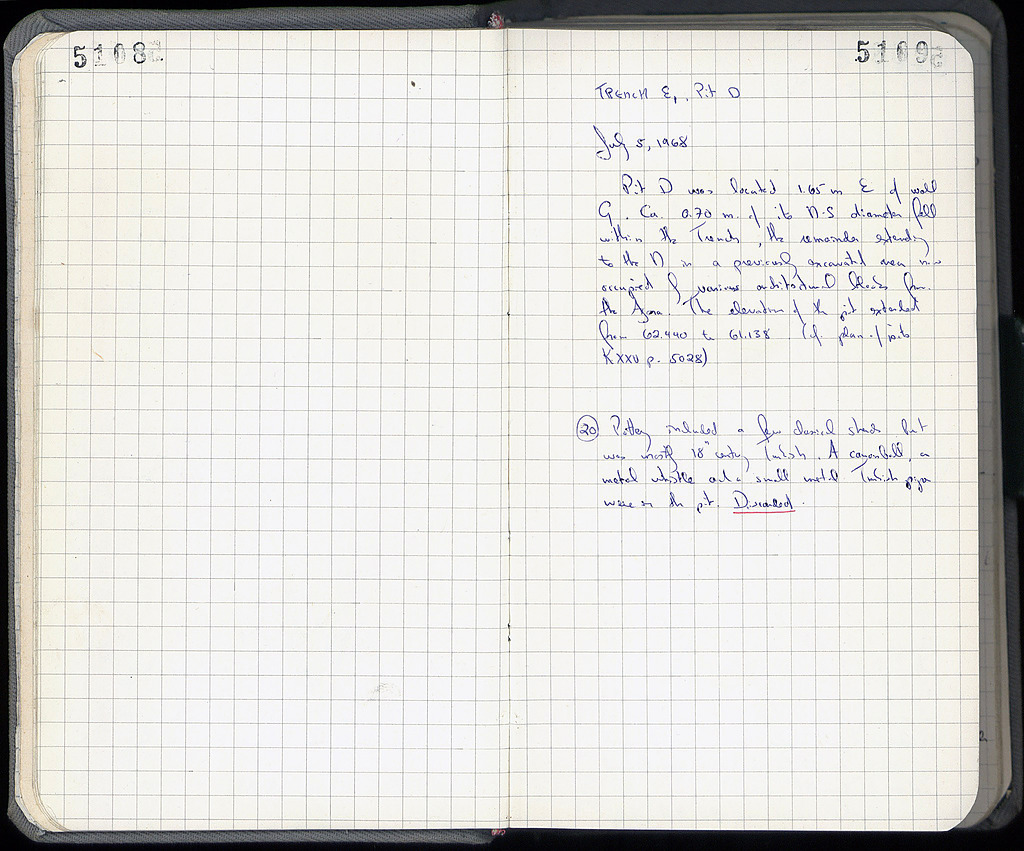 5108
5109
TRENCH E, Pit D
July 5, 1968
Pit D was located 1.65 m E of wall
G. Ca. 0.70 m. of its N-S diameter fell
within the Trench, the remainder extending
to the N in a previously excavated area now
occupied by various architectural blocks from
the Agora. The elevation of the pit extended
from 62.440 to 61.138 (cf. plan of pits
KXXV p. 5028)
20 Pottery included a few classical sherds but
was mostly 18th century Turkish. A cannonball, a
metal whistle and a small metal Turkish
were in the pit. Discarded.